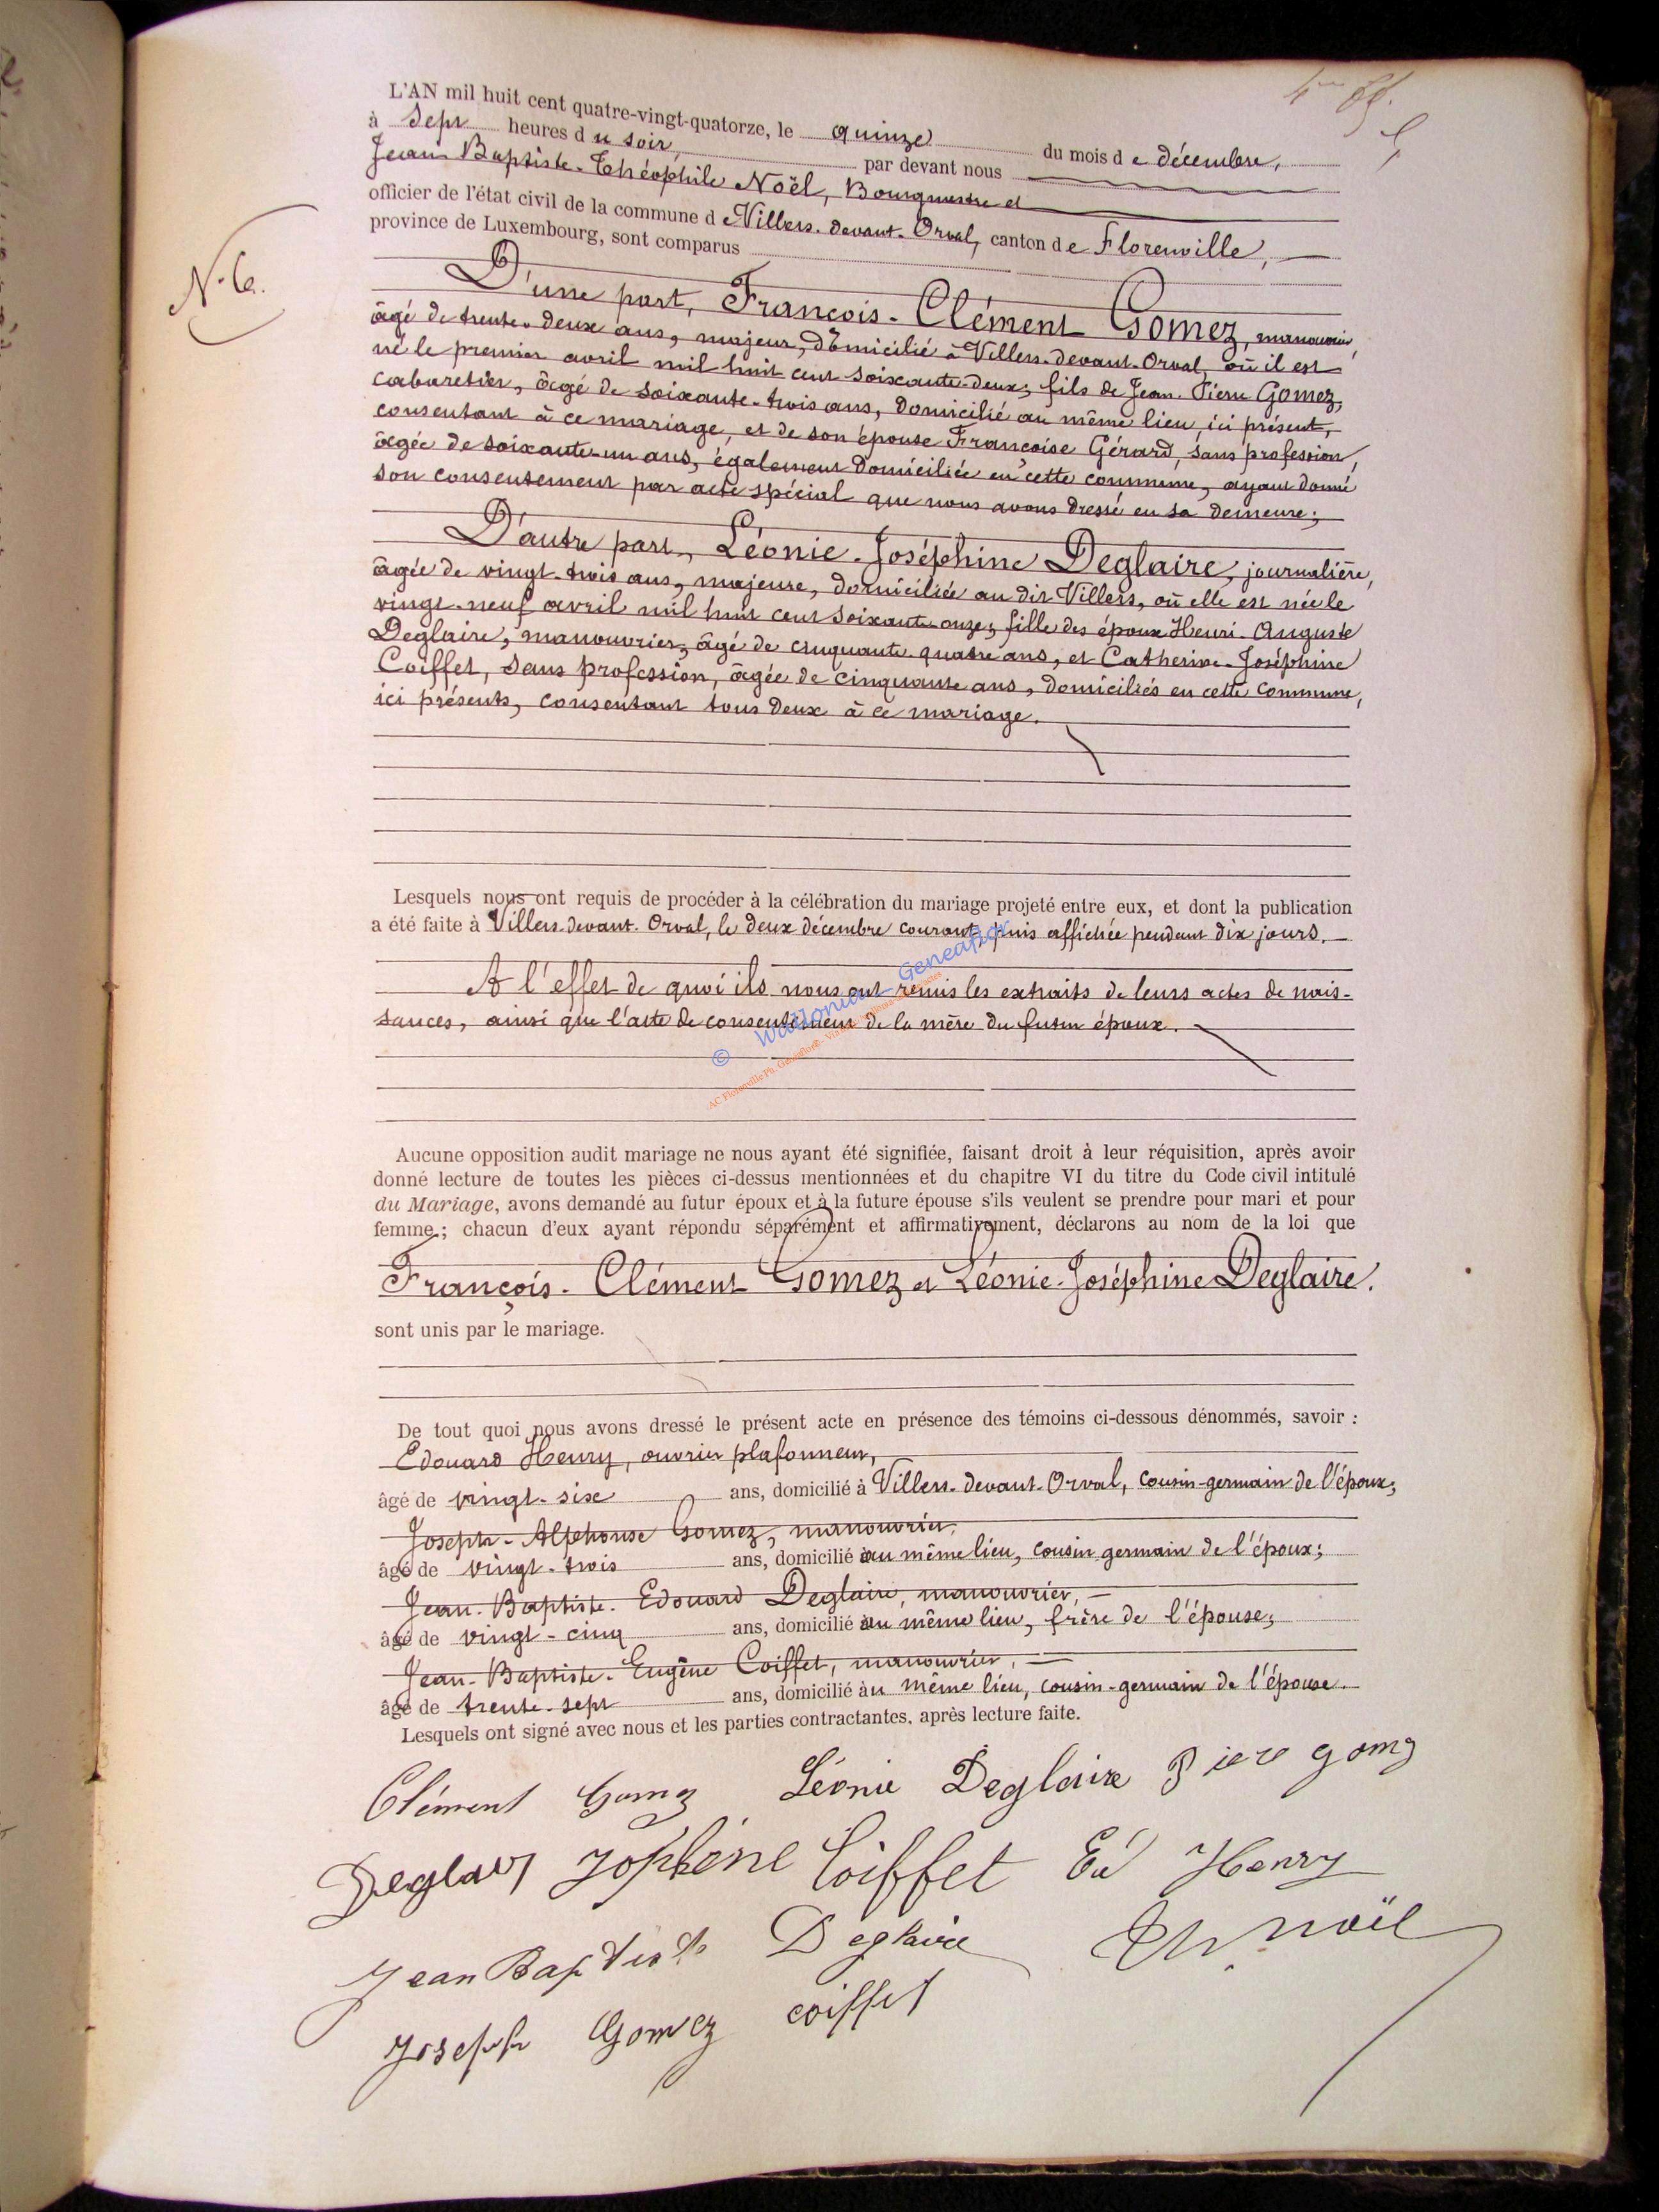 L'AN mil huit cent quatre-vingt-quatorze, le quinze du mois de décembre,
à Sept heures du soir, par devant nous
Jean-Baptiste-Théophile Noël, Bourgmestre et
officier de l'état civil de la commune de Villers-devant-Orval, canton de Florenville,
province de Luxembourg, sont comparus
N. 6.
D'une part, François-Clément Gomez, manouvrier,
âgé de trente-deux ans, majeur, domicilié à Villers-devant-Orval, où il est
né le premier avril mil huit cent soixante-deux; fils de Jean-Pierre Gomez,
cabaretier, âgé de soixante-trois ans, domicilié au même lieu, ici présent,
consentant à ce mariage, et de son épouse Françoise Gérard, sans profession,
âgée de soixante-un ans, également domiciliée en cette commune, ayant donné
son consentement par acte spécial que nous avons dressé en sa demeure;
D'autre part, Léonie-Joséphine Deglaire, journalière,
âgée de vingt-trois ans, majeure, domiciliée au dit Villers, où elle est née le
vingt-neuf avril mil huit cent soixante-onze; fille des époux Henri-Auguste
Deglaire, manouvrier, âgé de cinquante-quatre ans, et Catherine-Joséphine
Coiffet, sans profession, âgée de cinquante ans, domiciliés en cette commune,
ici présents, consentant tous deux à ce mariage.
Lesquels nous ont requis de procéder à la célébration du mariage projeté entre eux, et dont la publication
a été faite à Villers-devant-Orval, le deux décembre courant, puis affichée pendant dix jours.
A l'effet de quoi ils nous ont remis les extraits de leurs actes de nais-
sances, ainsi que l'acte de consentement de la mère du futur époux.
© Wallonia Geneaflor
Aucune opposition audit mariage ne nous ayant été signifiée, faisant droit à leur réquisition, après avoir
donné lecture de toutes les pièces ci-dessus mentionnées et du chapitre VI du titre du Code civil intitulé
du Mariage, avons demandé au futur époux et à la future épouse s'ils veulent se prendre pour mari et pour
femme; chacun d'eux ayant répondu séparément et affirmativement, déclarons au nom de la loi que
François-Clément Gomez et Léonie-Joséphine Deglaire.
sont unis par le mariage.
De tout quoi nous avons dressé le présent acte en présence des témoins ci-dessous dénommés, savoir :
Edouard Henry, ouvrier plafonneur,
âgé de vingt-six ans, domicilié à Villers-devant-Orval, cousin-germain de l'époux;
Joseph-Alphonse Gomez, manouvrier,
âgé de vingt-trois ans, domicilié au même lieu, cousin germain de l'époux;
Jean-Baptiste-Edouard Deglaire, manouvrier,
âgé de vingt-cinq ans, domicilié au même lieu, frère de l'épouse;
Jean-Baptiste-Eugène Coiffet, manouvrier,
âgé de trente-sept ans, domicilié au même lieu, cousin-germain de l'épouse.
Lesquels ont signé avec nous et les parties contractantes, après lecture faite.
Clément Gomez Léonie Deglaire Piere gomz
Joséphine Coiffet Ed Henry
Jean Baptiste Deglaire Th. Noël
Joseph Gomez coiffet